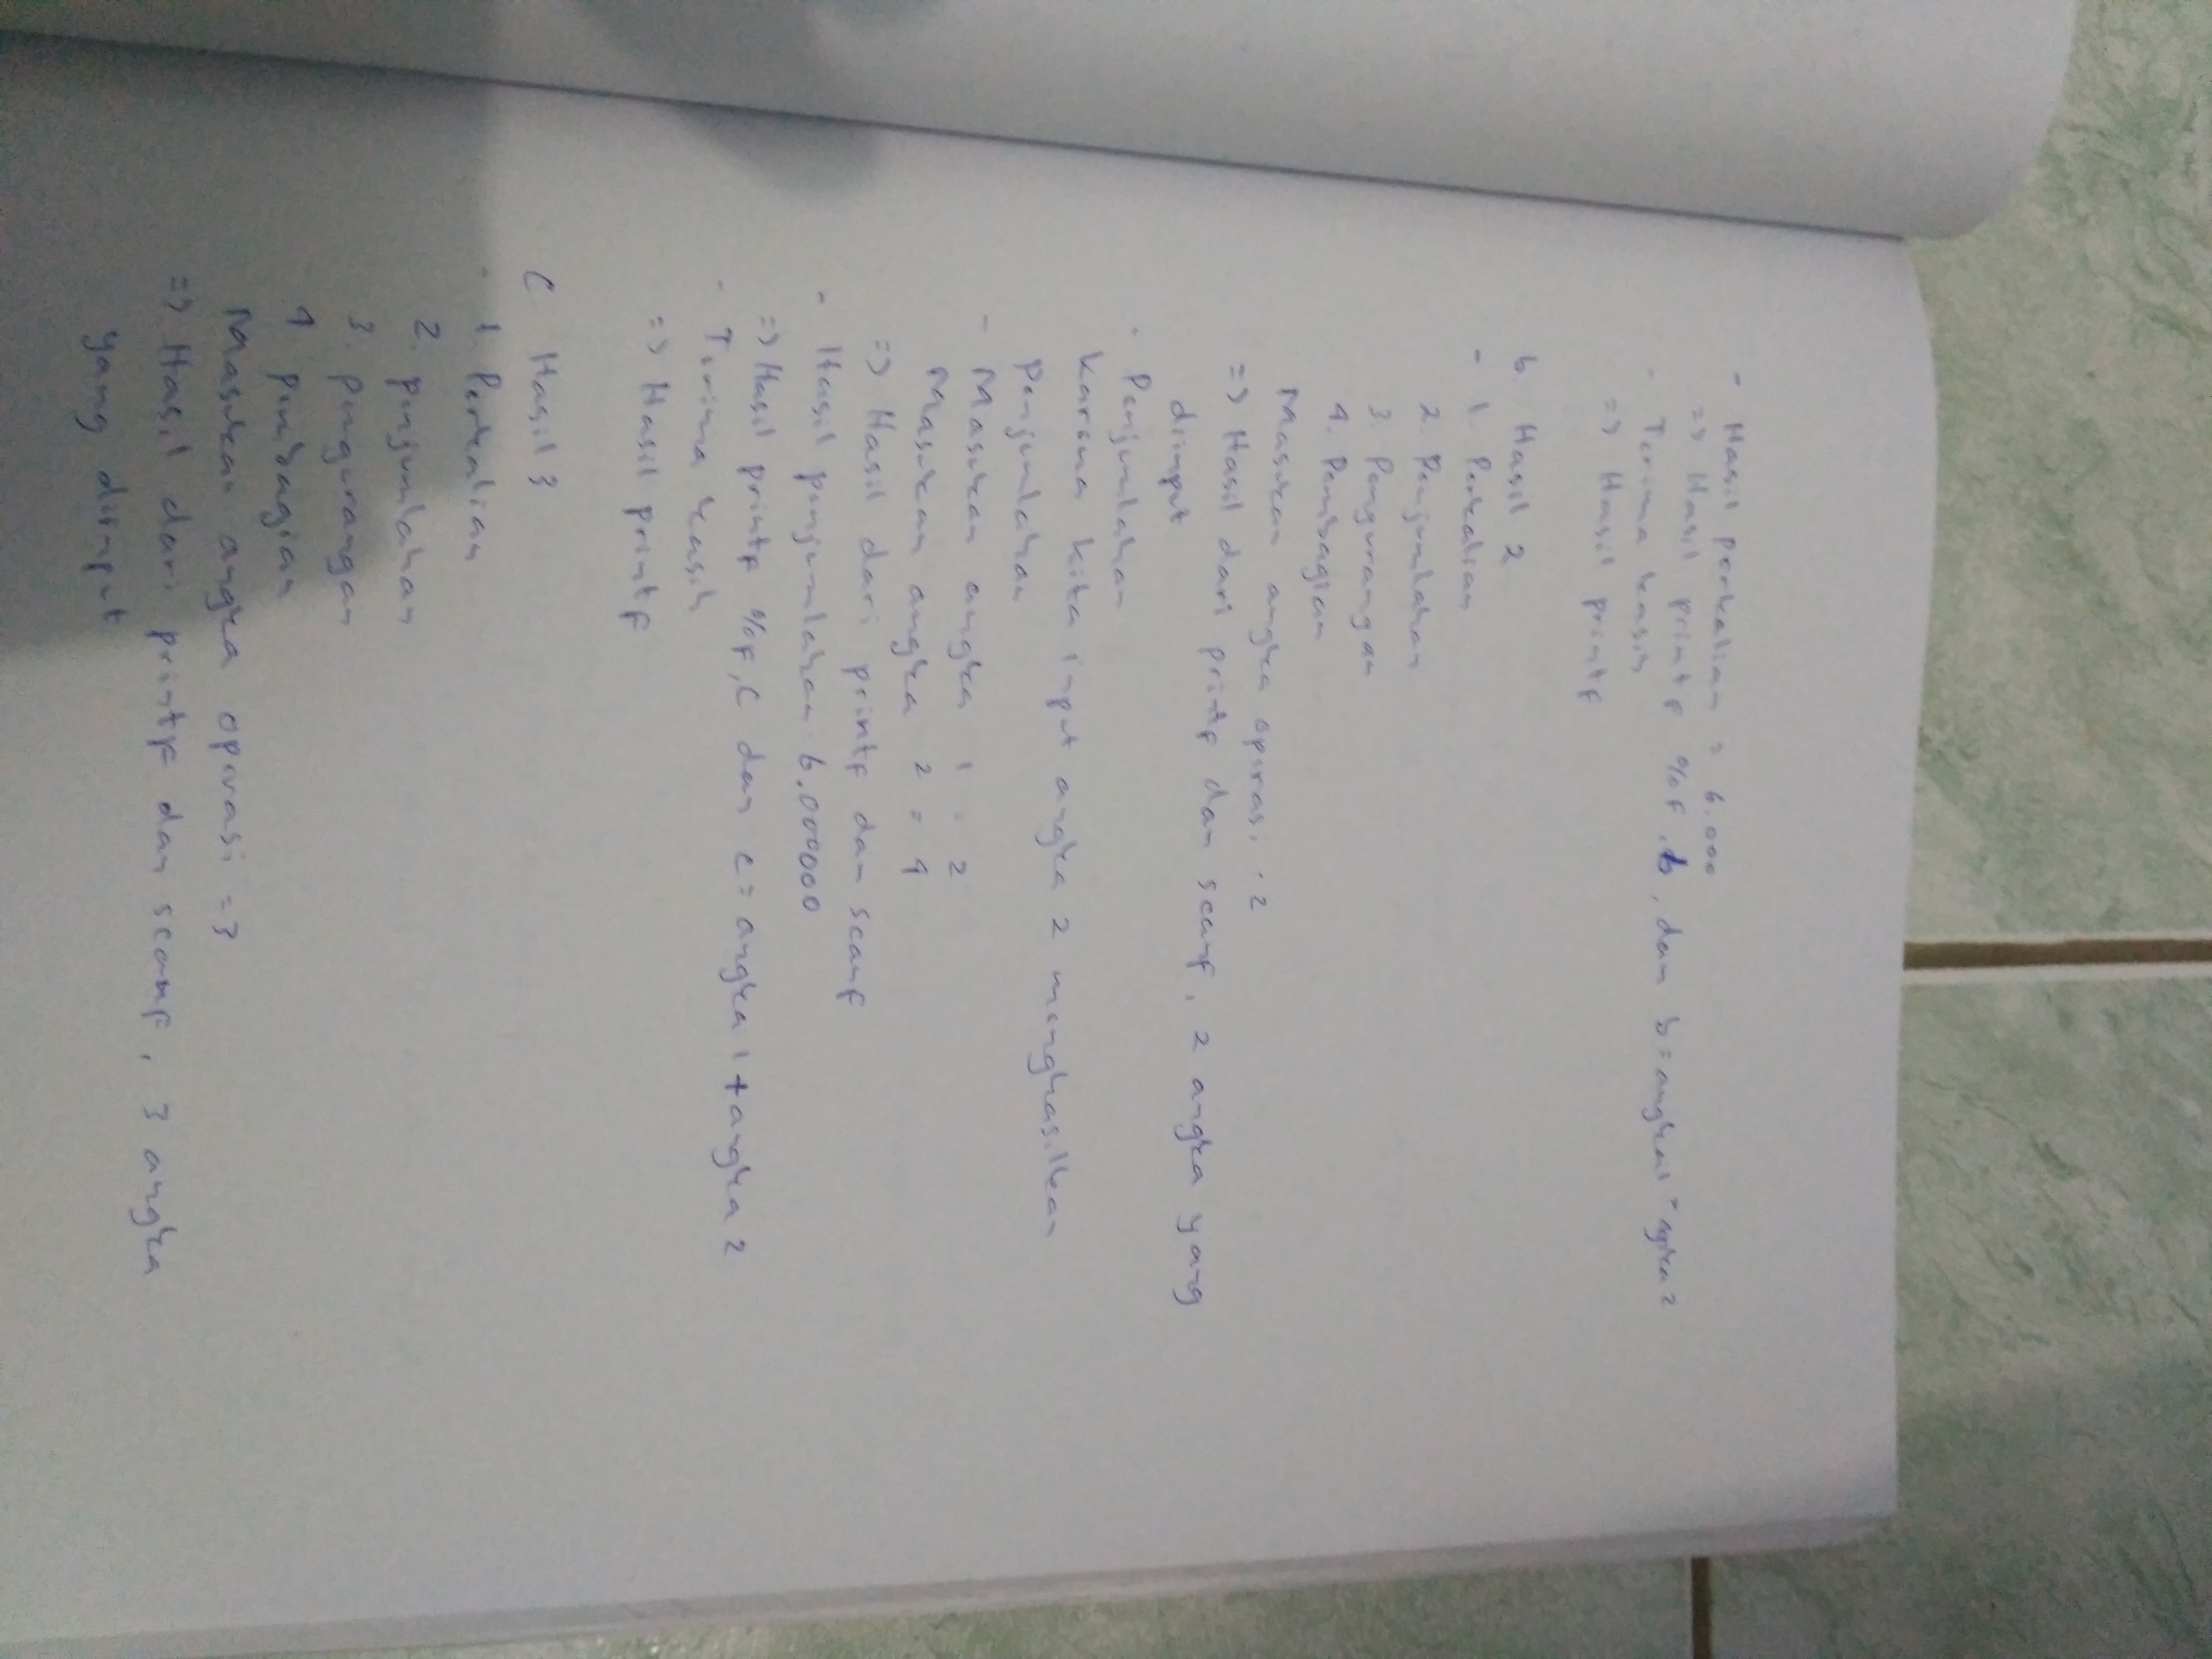 - Hasil perkalian = 6.000
=> Hasil printf %f, b, dan b = angka1 * angka2
- Terima kasih
=> Hasil printf
b Hasil 2
- 1. Perkalian
2. Penjumlahan
3. Pengurangan
4. Pembagian
Masukan angka operasi : 2
=> Hasil dari printf dan scanf, 2 angka yang
diinput
- Penjumlahan
Karena kita input angka 2 menghasilkan
penjumlahan
- Masukan angka 1 = 2
Masukan angka 2 = 4
=> Hasil dari printf dan scanf
- Hasil penjumlahan 6.000000
=> Hasil printf %f, c dan c = angka 1 + angka 2
- Terima kasih
=> Hasil printf
C Hasil 3
- 1. Perkalian
2. penjumlahan
3. pengurangan
4. pembagian
Masukan angka operasi = 3
=> Hasil dari printf dan scanf, 3 angka
yang diinput